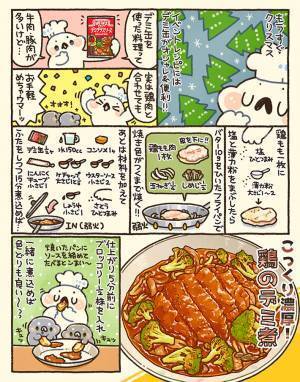 もうすぐ
クリスマス
イベントレシピには
デミ缶がオシャレ&便利!!
デミ缶を
使った料理って
牛肉・豚肉が
多いけど…
実は鶏肉と
合わせても
お手軽
めちゃウマ〜
オオオ!
鶏もも肉に
塩と薄力粉をまぶしたら
鶏もも肉
1枚
塩
ひとつまみ
薄力粉
大さじ1〜2
バター10gをひいたフライパンで
皮を下に!!
鶏もも肉
1枚
玉ねぎ½
しめじ½
弱火
焼き目がつくまで焼く!!
あとは材料を加えて
デミ缶½
水150cc
コンソメ1コ
にんにく
チューブ
小さじ1
ケチャップ
大さじ1
ウスターソース
小さじ2
しょうゆ
小さじ1
さとう
ひとつまみ
IN(弱火)
ふたをしつつ15分煮込めば…
弱火
こっくり濃厚!
鶏のデミ煮
仕上がり5分前に
ブロッコリー½株を入れ
一緒に煮込めば
色どりも良い〜♪
焼いたパンに
ソースを絡めて
たべるとこりゃまた…
キュッ
キュッ